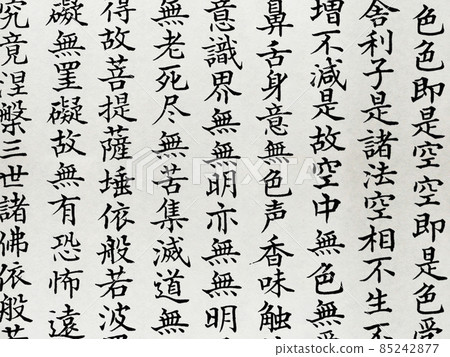 色色即是空空即是色受
舎利子是諸法空相不生不
増不減是故空中無色無受
鼻舌身意無色声香味触
意識界無無明亦無無明
無老死尽無苦集滅道無
得故菩提薩埵依般若波羅
礙無罣礙故無有恐怖遠
究竟涅槃三世諸佛依般若
PIXTA
pixta.jp - 85242877